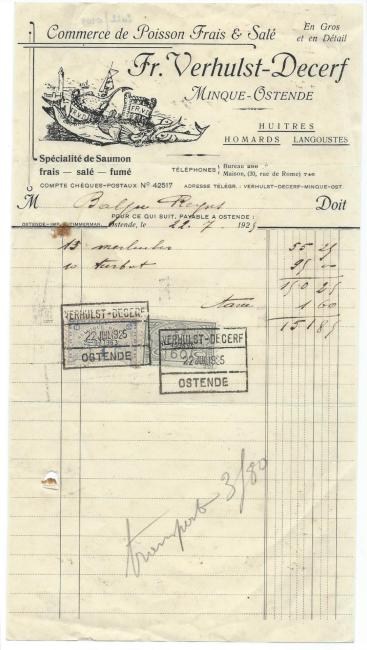 Commerce de Poisson Frais & Salé
En Gros
et en Détail
Fr. Verhulst-Decerf
MINQUE-OSTENDE
HUITRES
HOMARDS LANGOUSTES
Spécialité de Saumon
frais — salé — fumé
TÉLÉPHONES
Bureau
Maison, (30, rue de Rome) 746
COMPTE CHÈQUES-POSTAUX No 42517 ADRESSE TÉLÉGR. : VERHULST-DECERF-MINQUE-OST.
M Doit
POUR CE QUI SUIT, PAYABLE A OSTENDE :
Ostende, le 22.7.1925
15 merluches 55 25
10 turbot 95
150 25
taxe 1.60
151 85
VERHULST-DECERF
22 JUIL 1925
OSTENDE
VERHULST-DECERF
22 JUIL 1925
OSTENDE
transport 3/80